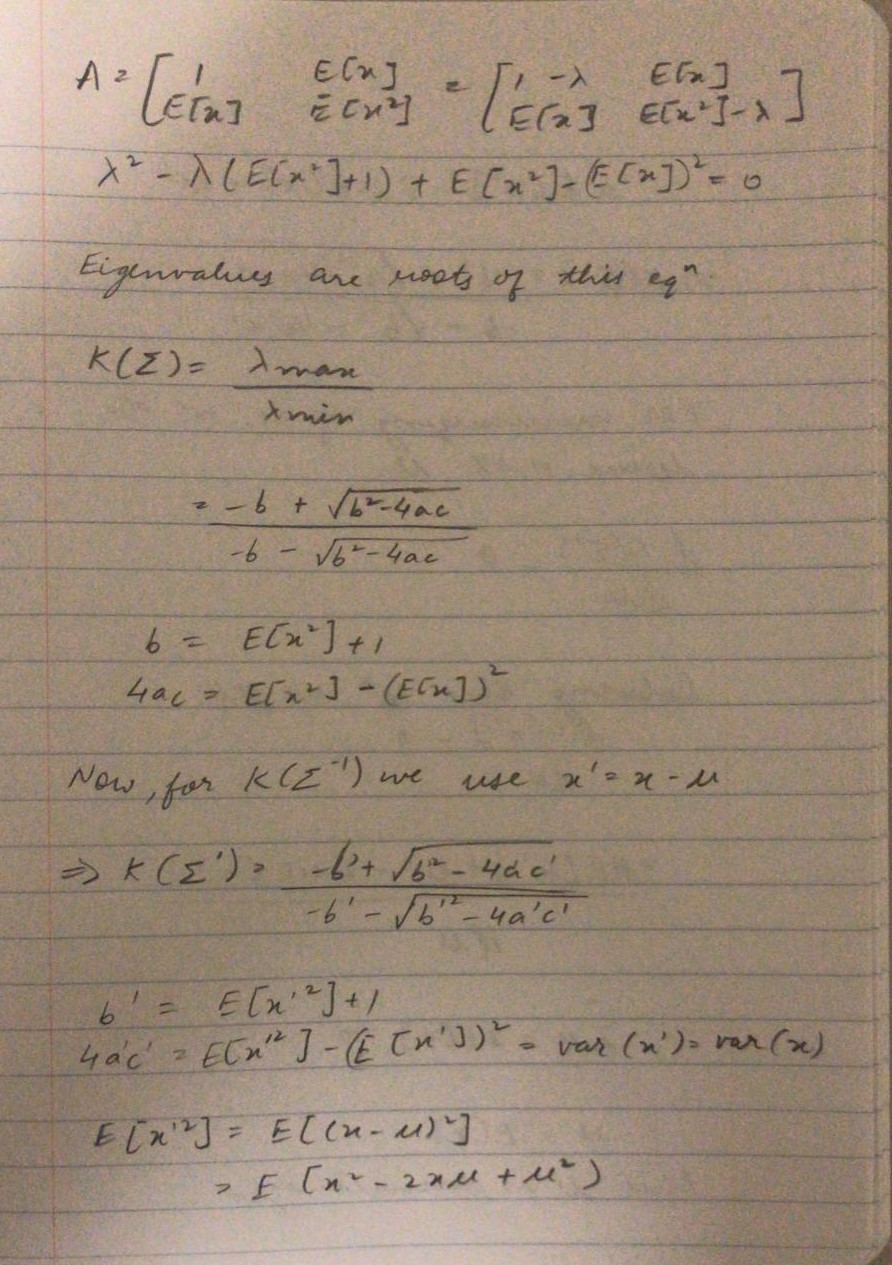 A = [1 E[x] E[x] E[x²]] = [1 -λ E[x] E[x] E[x²]-λ]
λ² - λ(E[x²]+1) + E[x²]-(E[x])² = 0
Eigenvalues are roots of this eqⁿ.
K(Σ) = λmax / λmin
= -b + √b²-4ac / -b - √b²-4ac
b = E[x²]+1
4ac = E[x²] - (E[x])²
Now, for K(Σ⁻¹) we use x' = x - μ
⇒ K(Σ') = -b' + √b² - 4a'c' / -b' - √b'² - 4a'c'
b' = E[x'²]+1
4a'c' = E[x'²] - (E[x'])² = var(x') = var(x)
E[x'²] = E[(x-μ)²]
= E[x² - 2xμ + μ²)